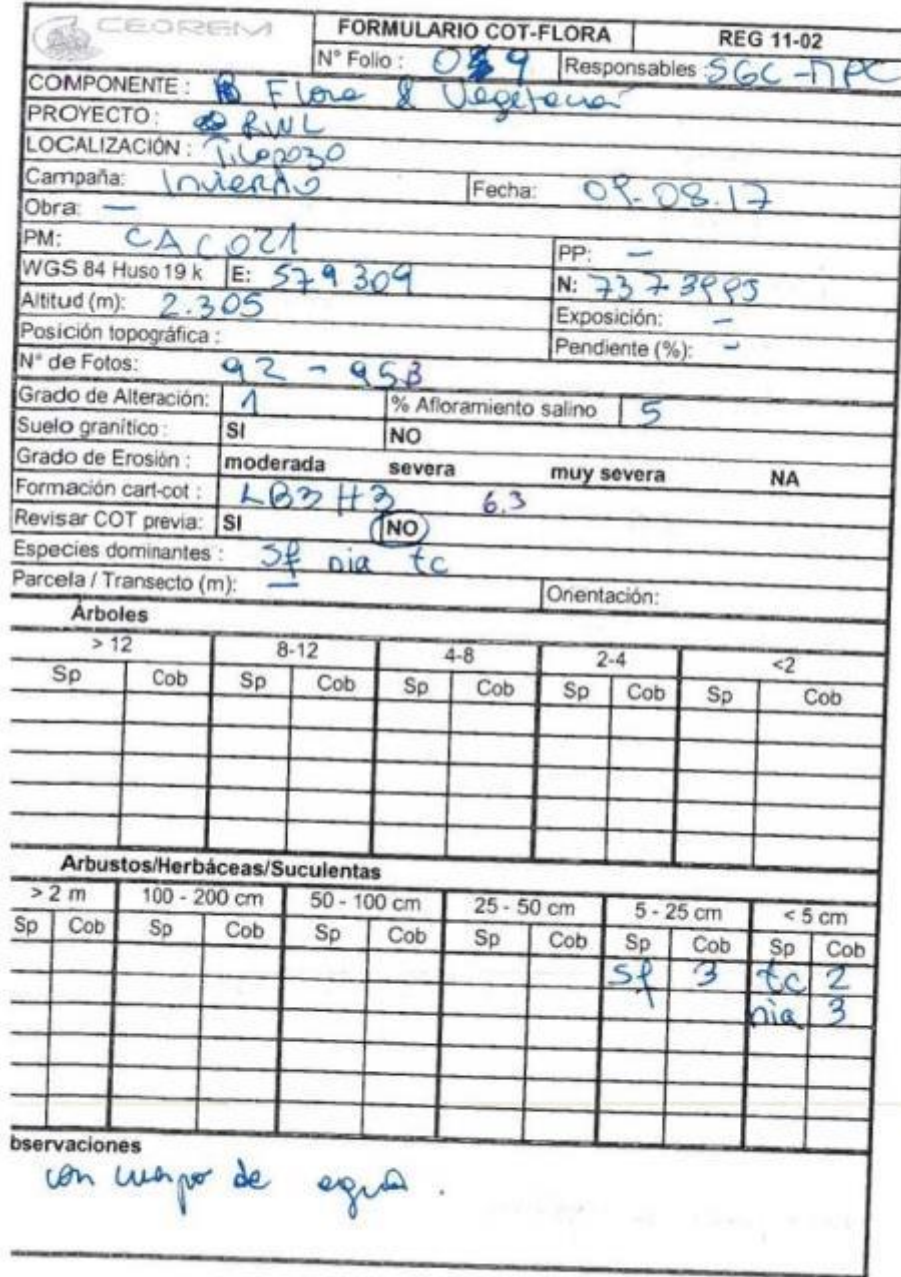 CEOREM
FORMULARIO COT-FLORA REG 11-02
N° Folio : 9 Responsables : SGC - MPC
COMPONENTE : Flora & Vegetación
PROYECTO : RWL
LOCALIZACIÓN : Tilopozo
Campaña: Invierno Fecha: 09.08.17
Obra: —
PM: CAC021 PP: —
WGS 84 Huso 19 k E: 579309 N:
Altitud (m): 2.305 Exposición: —
Posición topográfica : Pendiente (%): —
N° de Fotos: 92 - 95
Grado de Alteración: 1 % Afloramiento salino 5
Suelo granítico : SI NO
Grado de Erosión : moderada severa muy severa NA
Formación cart-cot : LB3 H3 6.3
Revisar COT previa: SI NO
Especies dominantes : Sf nia tc
Parcela / Transecto (m): — Orientación:
Árboles
> 12 8-12 4-8 2-4 <2
Sp Cob Sp Cob Sp Cob Sp Cob Sp Cob
Arbustos/Herbáceas/Suculentas
> 2 m 100 - 200 cm 50 - 100 cm 25 - 50 cm 5 - 25 cm < 5 cm
Sp Cob Sp Cob Sp Cob Sp Cob Sp Cob Sp Cob
Sf 3 tc 2
nia 3
bservaciones
con cuerpo de agua .